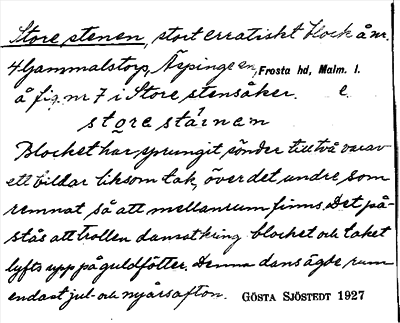 Store stenen, stort erratiskt block å nr.
4 Gammalstorp, Äspinge sn, Frosta hd, Malm. l.
å fig. nr 7 i Store stensåker. e.
store stainen
Blocket har sprungit sönder till två varav
ett bildar liksom tak över det undre som
remnat så att mellanrum finns. Det på-
stås att trollen dansat kring blocket och taket
lyfts upp på guldfötter. Denna dans ägde rum
endast jul- och nyårsafton. GÖSTA SJÖSTEDT 1927